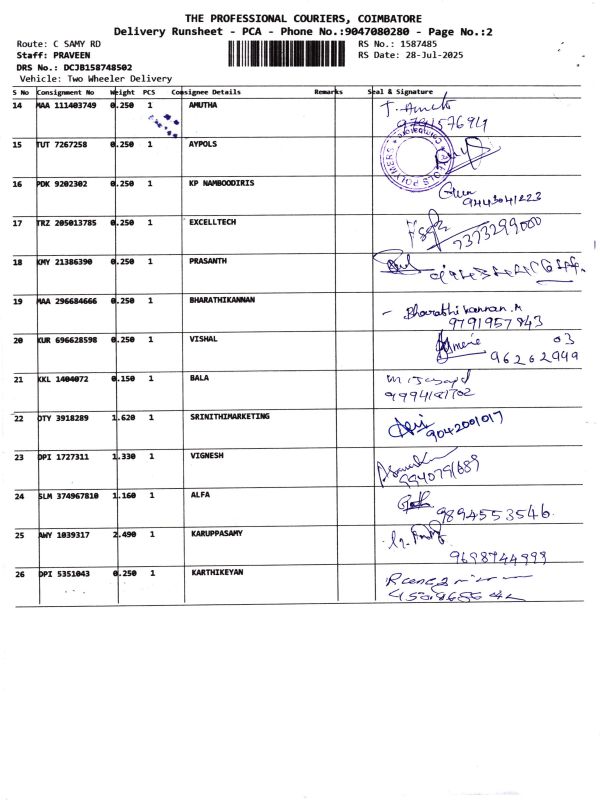 THE PROFESSIONAL COURIERS, COIMBATORE
Delivery Runsheet - PCA - Phone No.:9047080280 - Page No.:2
Route: C SAMY RD RS No.: 1587485
Staff: PRAVEEN RS Date: 28-Jul-2025
DRS No.: DCJB158748502
Vehicle: Two Wheeler Delivery
S No Consignment No Weight PCS Consignee Details Remarks Seal & Signature
14 MAA 111403749 0.250 1 AMUTHA
15 TUT 7267258 0.250 1 AYPOLS
16 PDK 9202302 0.250 1 KP NAMBOODIRIS
9443041223
17 TRZ 205013785 0.250 1 EXCELLTECH
7373299000
18 KMY 21386390 0.250 1 PRASANTH
19 MAA 296684666 0.250 1 BHARATHIKANNAN
Bharathi kannan.M
9791957843
20 KUR 696628598 0.250 1 VISHAL
03
96262949
21 KKL 1404072 0.150 1 BALA
22 OTY 3918289 1.620 1 SRINITHIMARKETING
9042001017
23 DPI 1727311 1.330 1 VIGNESH
24 SLM 374967810 1.160 1 ALFA
9894553546
25 AWY 1039317 2.490 1 KARUPPASAMY
9698744999
26 DPI 5351043 0.250 1 KARTHIKEYAN